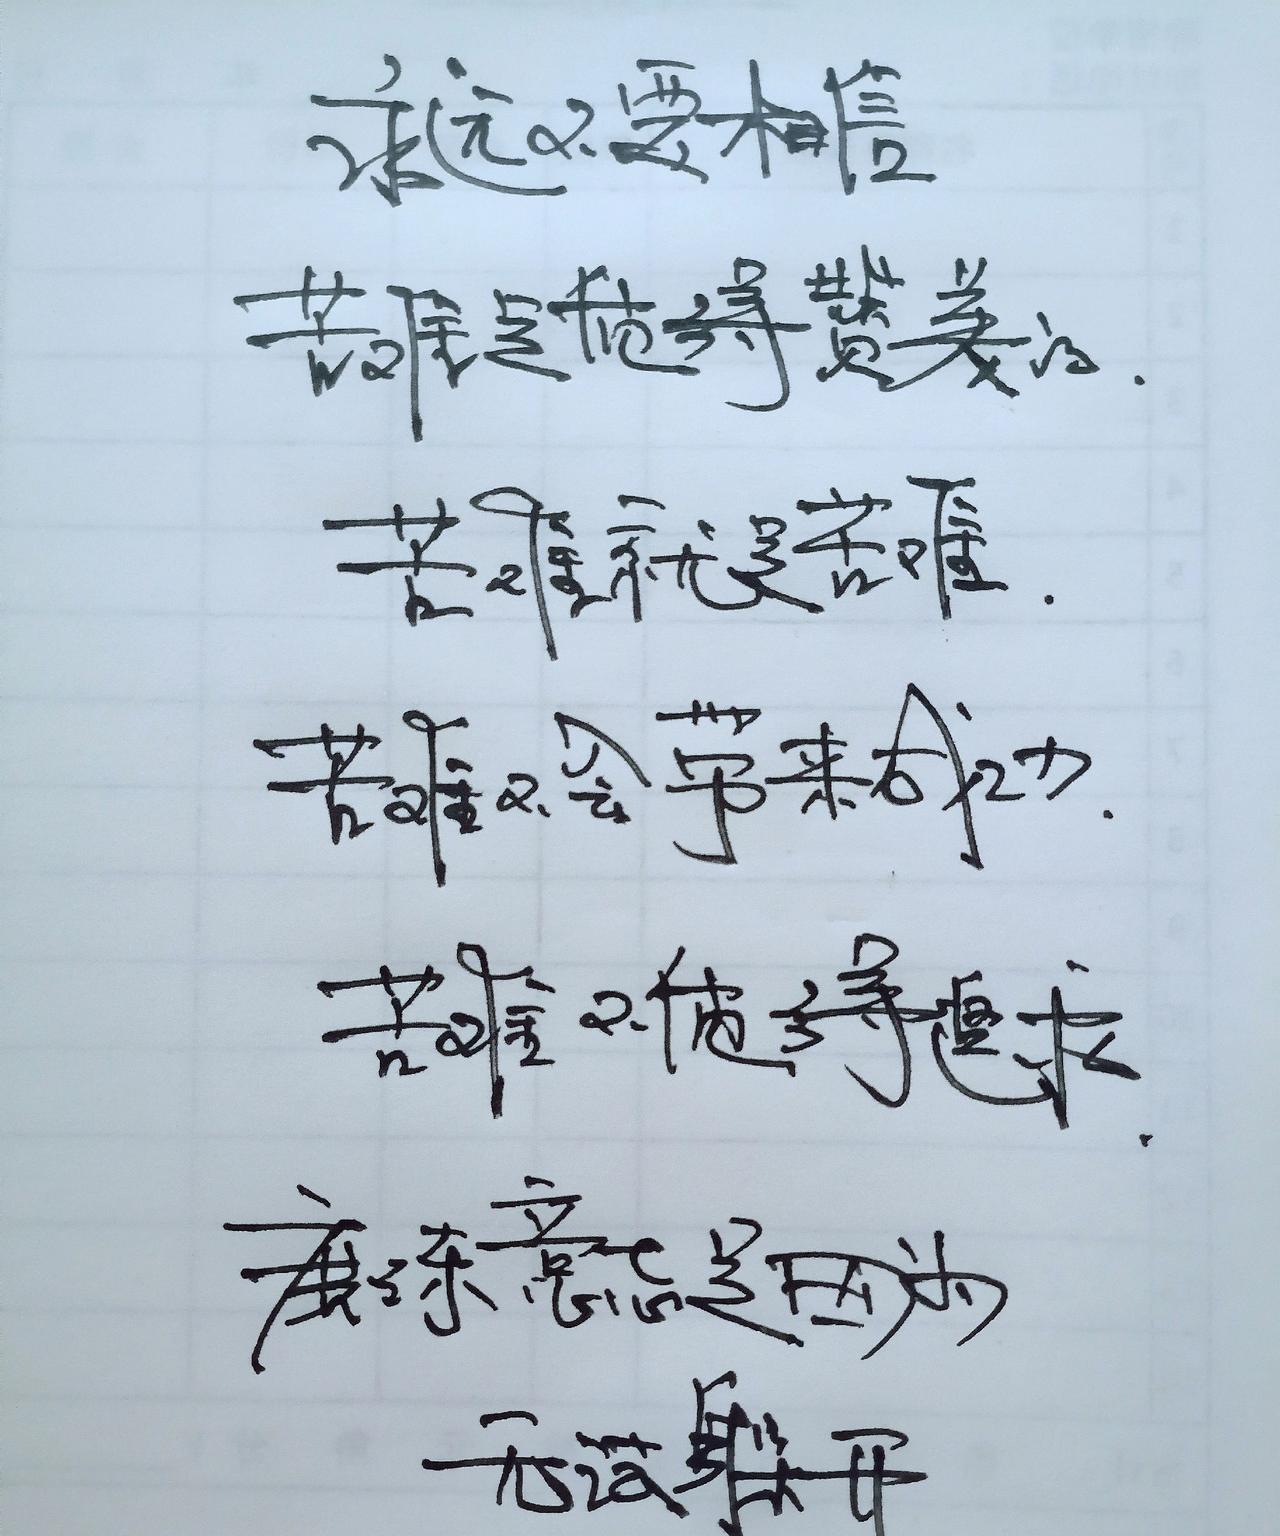 永远不要相信
苦难是值得赞美的.
苦难就是苦难.
苦难不会带来成功.
苦难不值得追求.
磨练意志是因为
无法躲开